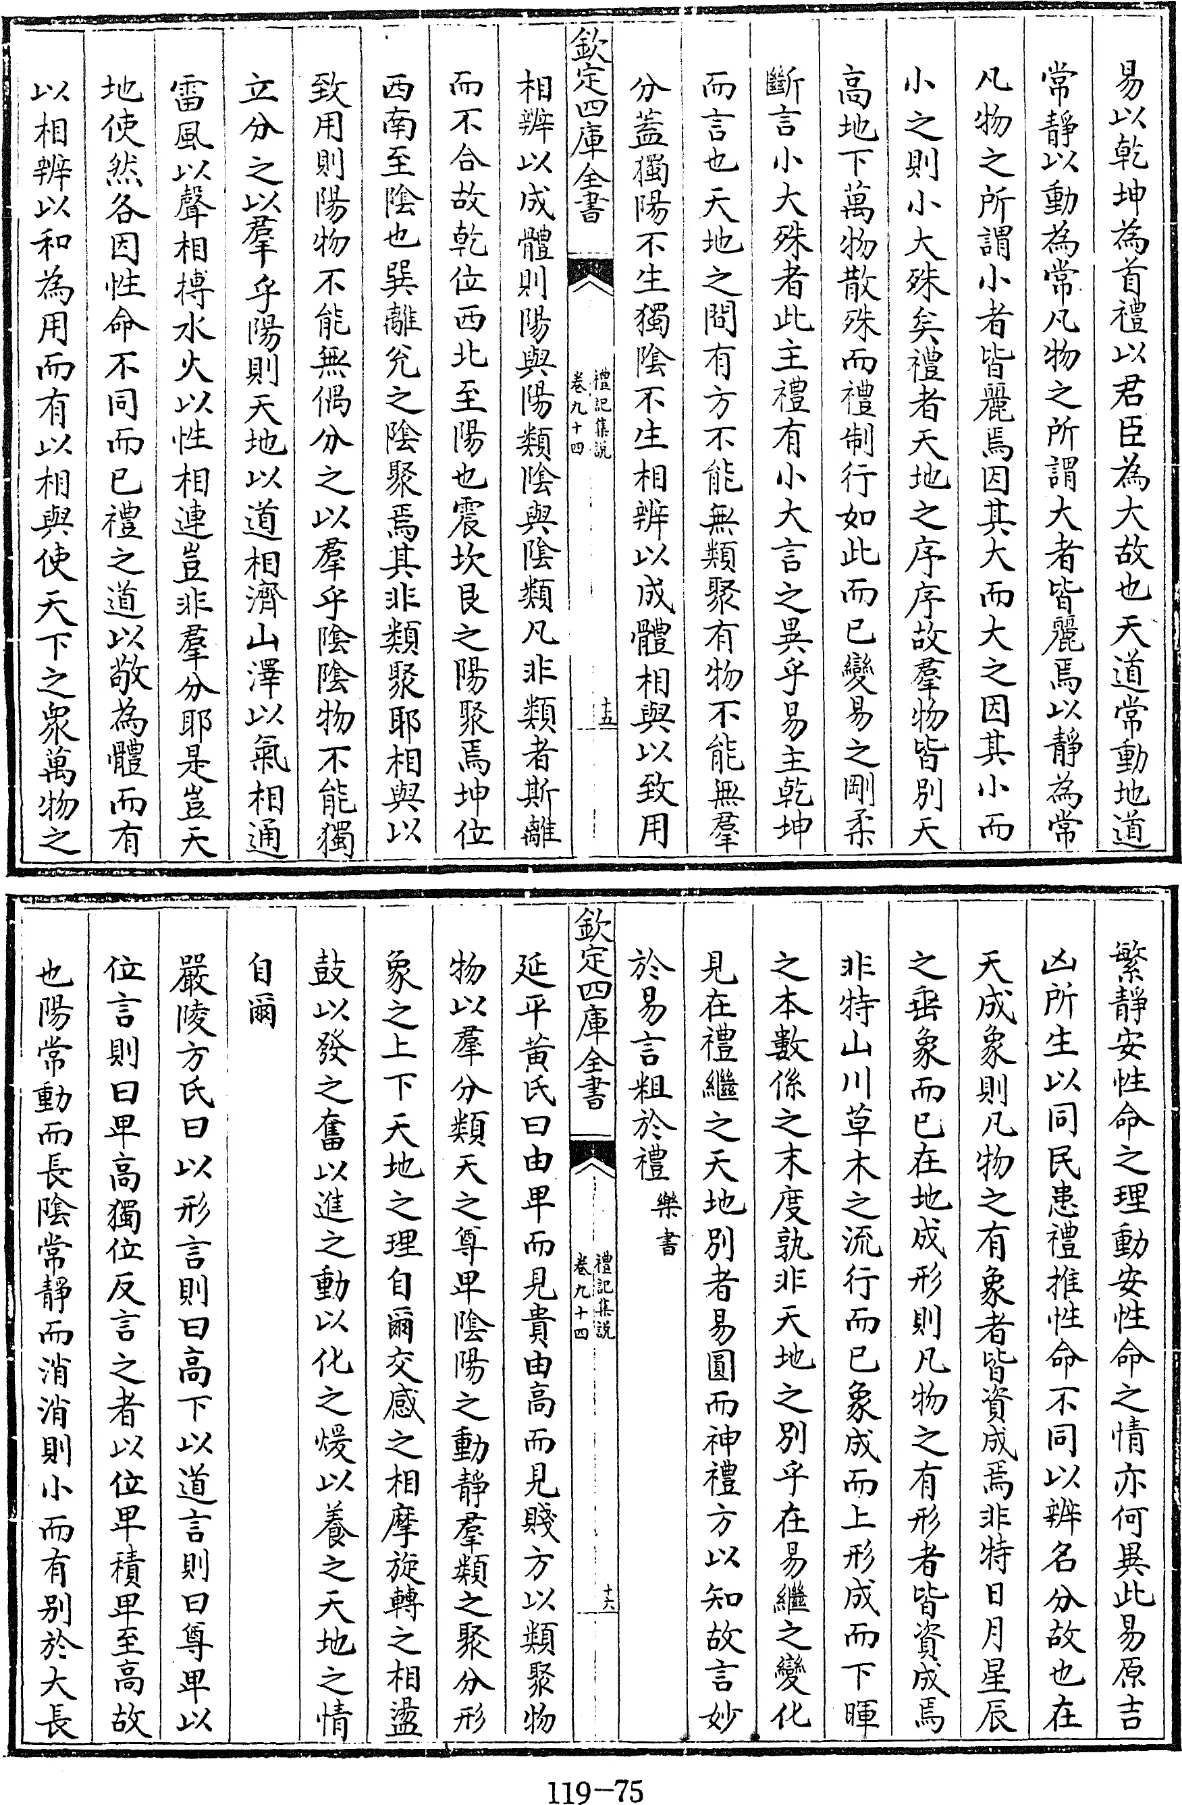 易以乾坤為首禮以君臣為大故也天道常動地道
常靜以動為常凡物之所謂大者皆麗焉以靜為常
凡物之所謂小者皆麗焉因其大而大之因其小而
小之則小大殊矣禮者天地之序序故羣物皆別天
高地下萬物散殊而禮制行如此而已變易之剛柔
斷言小大殊者此主禮有小大言之異乎易主乾坤
而言也天地之間有方不能無類聚有物不能無羣
分蓋獨陽不生獨陰不生相辨以成體相與以致用
欽定四庫全書
禮記集説
卷九十四
十五
相辨以成體則陽與陽類陰與陰類凡非類者斯離
而不合故乾位西北至陽也震坎艮之陽聚焉坤位
西南至陰也巽離兊之陰聚焉其非類聚耶相與以
致用則陽物不能無偶分之以羣乎陰陰物不能獨
立分之以羣乎陽則天地以道相濟山澤以氣相通
雷風以聲相搏水火以性相連豈非羣分耶是豈天
地使然各因性命不同而已禮之道以敬為體而有
以相辨以和為用而有以相與使天下之衆萬物之
繁靜安性命之理動安性命之情亦何異此易原吉
凶所生以同民患禮推性命不同以辨名分故也在
天成象則凡物之有象者皆資成焉非特日月星辰
之垂象而已在地成形則凡物之有形者皆資成焉
非特山川草木之流行而已象成而上形成而下暉
之本數係之末度孰非天地之別乎在易繼之變化
見在禮繼之天地別者易圓而神禮方以知故言妙
於易言粗於禮樂書
欽定四庫全書
禮記集説
卷九十四
十六
延平黄氏曰由卑而見貴由高而見賤方以類聚物
物以羣分類天之尊卑陰陽之動靜羣類之聚分形
象之上下天地之理自爾交感之相摩旋轉之相盪
鼓以發之奮以進之動以化之煖以養之天地之情
自爾
嚴陵方氏曰以形言則曰高下以道言則曰尊卑以
位言則曰卑高獨位反言之者以位卑積卑至高故
也陽常動而長陰常靜而消消則小而有別於大長
119-75